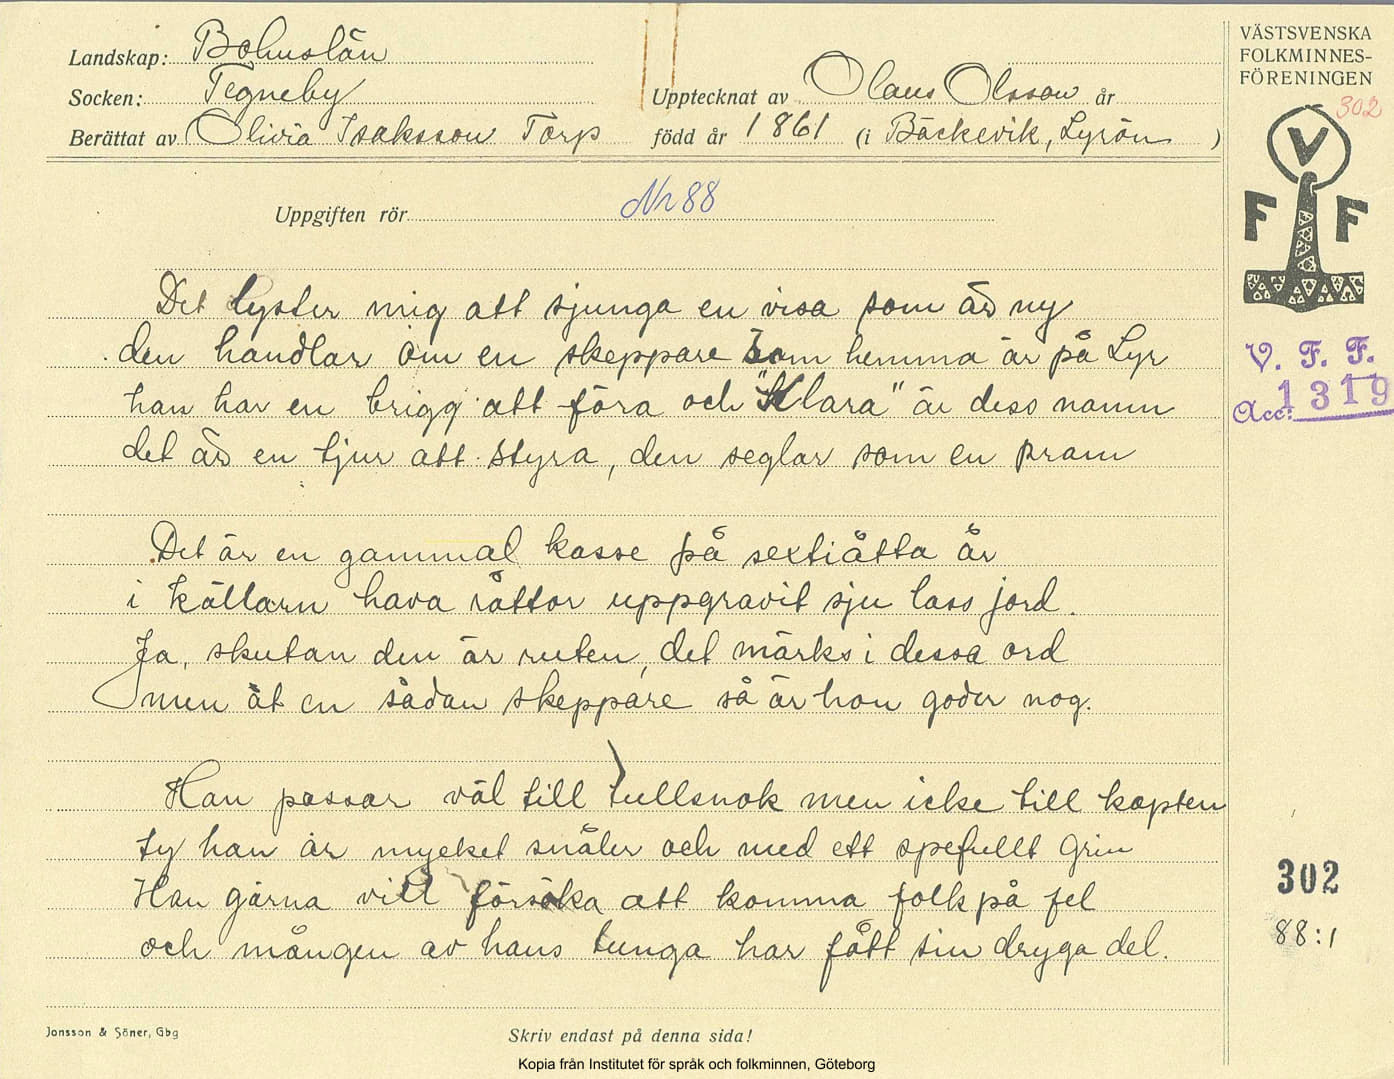 Landskap: Bohuslän
Socken: Tegneby
Upptecknat av Olaus Olsson år
Berättat av Olivia Isaksson Torp
född år 1861 (i Bäckevik, Lyrön )
VÄSTSVENSKA
FOLKMINNES-
FÖRENINGEN
302
V
F F
Uppgiften rör Nr 88
V. F. F.
Acc: 1319
Det lyster mig att sjunga en visa som är ny
den handlar om en skeppare som hemma är på Lyr
han har en brigg att föra och "Klara" är dess namn
det är en tjur att styra, den seglar som en pram
Det är en gammal kasse på sextiåtta år
i källarn hava råttor uppgravit sju lass jord.
Ja, skutan den är ruten, det märks i dessa ord
men åt en sådan skeppare så är hon goder nog.
Han passar väl till tullsnok men icke till kapten
ty han är mycket snåler och med ett spefullt grin
Han gärna vill försöka att komma folk på fel
och mången av hans tunga har fått sin dryga del.
302
88:1
Jonsson & Söner, Gbg
Skriv endast på denna sida!
Kopia från Institutet för språk och folkminnen, Göteborg